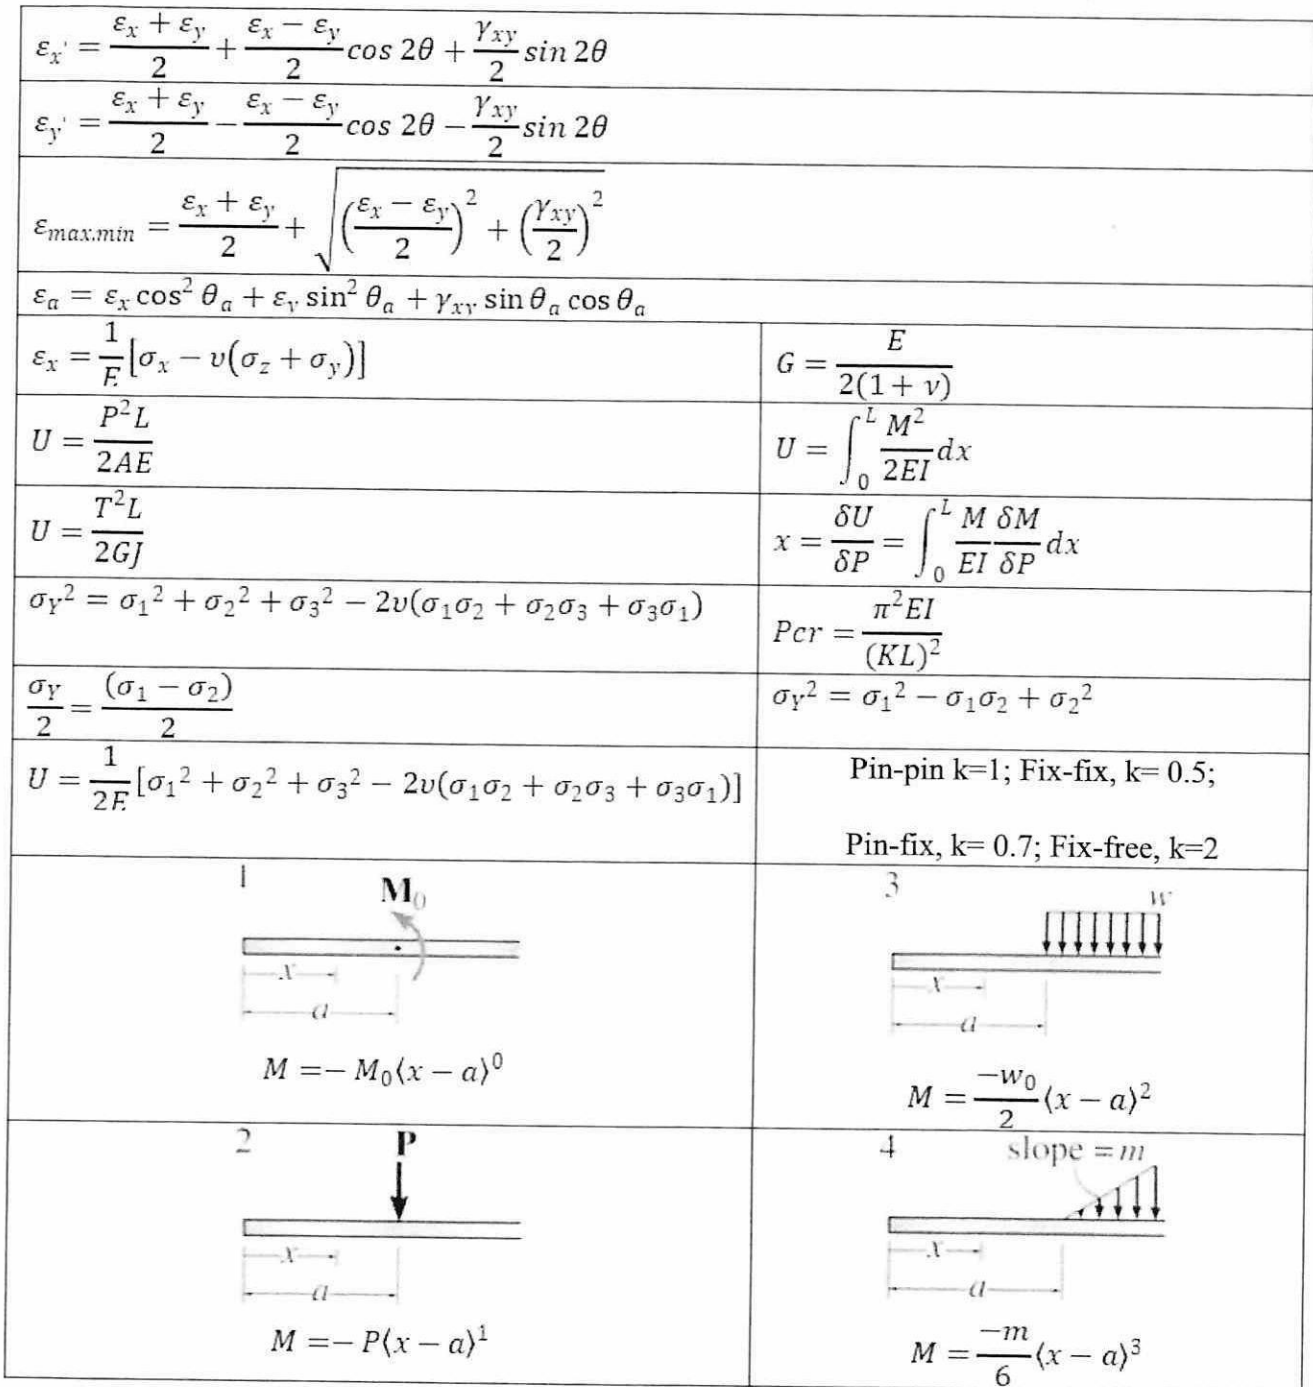 εx' = (εx + εy)/2 + (εx − εy)/2 cos 2θ + γxy/2 sin 2θ
εy' = (εx + εy)/2 − (εx − εy)/2 cos 2θ − γxy/2 sin 2θ
εmax.min = (εx + εy)/2 + √(((εx − εy)/2)² + (γxy/2)²)
εa = εx cos² θa + εy sin² θa + γxy sin θa cos θa
εx = 1/E [σx − υ(σz + σy)]
G = E/(2(1 + ν))
U = P²L/(2AE)
U = ∫₀ᴸ M²/(2EI) dx
U = T²L/(2GJ)
x = δU/δP = ∫₀ᴸ M/EI δM/δP dx
σY² = σ1² + σ2² + σ3² − 2υ(σ1σ2 + σ2σ3 + σ3σ1)
Pcr = π²EI/(KL)²
σY/2 = (σ1 − σ2)/2
σY² = σ1² − σ1σ2 + σ2²
U = 1/2E [σ1² + σ2² + σ3² − 2υ(σ1σ2 + σ2σ3 + σ3σ1)]
Pin-pin k=1; Fix-fix, k= 0.5;
Pin-fix, k= 0.7; Fix-free, k=2
1
M0
x
a
M =− M0⟨x − a⟩⁰
3
w
x
a
M = −w0/2 ⟨x − a⟩²
2
P
x
a
M =− P⟨x − a⟩¹
4
slope = m
x
a
M = −m/6 ⟨x − a⟩³